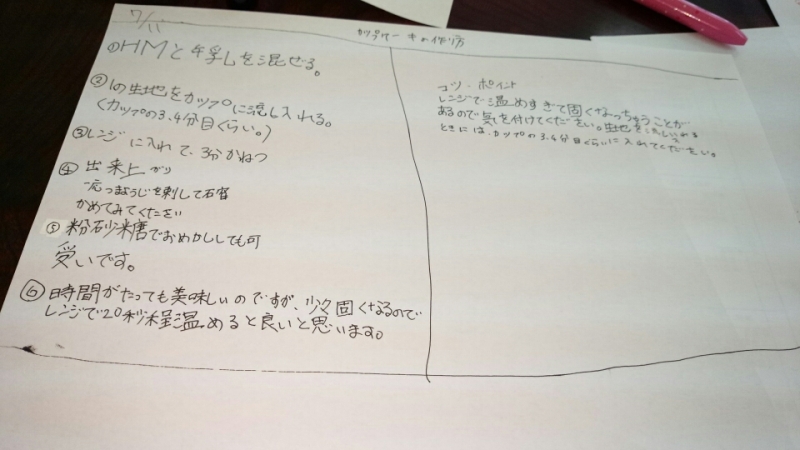 7/11
カップケーキの作り方
①HMと牛乳を混ぜる。
②1の生地をカップに流し入れる。
(カップの3、4分目くらい。)
③レンジに入れて、3分かねつ
④出来上がり
一応つまようじを刺して石窑
かめてみてください
⑤粉砂糖でおめかししても可
受いです。
⑥時間がたっても美味しいのですが、少々固くなるので
レンジで20秒程温めると良いと思います。
コツ・ポイント
レンジで温めすぎて固くなっちゃうことが
あるので気を付けてください。生地を流し入れる
ときには、カップの3、4分目くらいに入れてください。